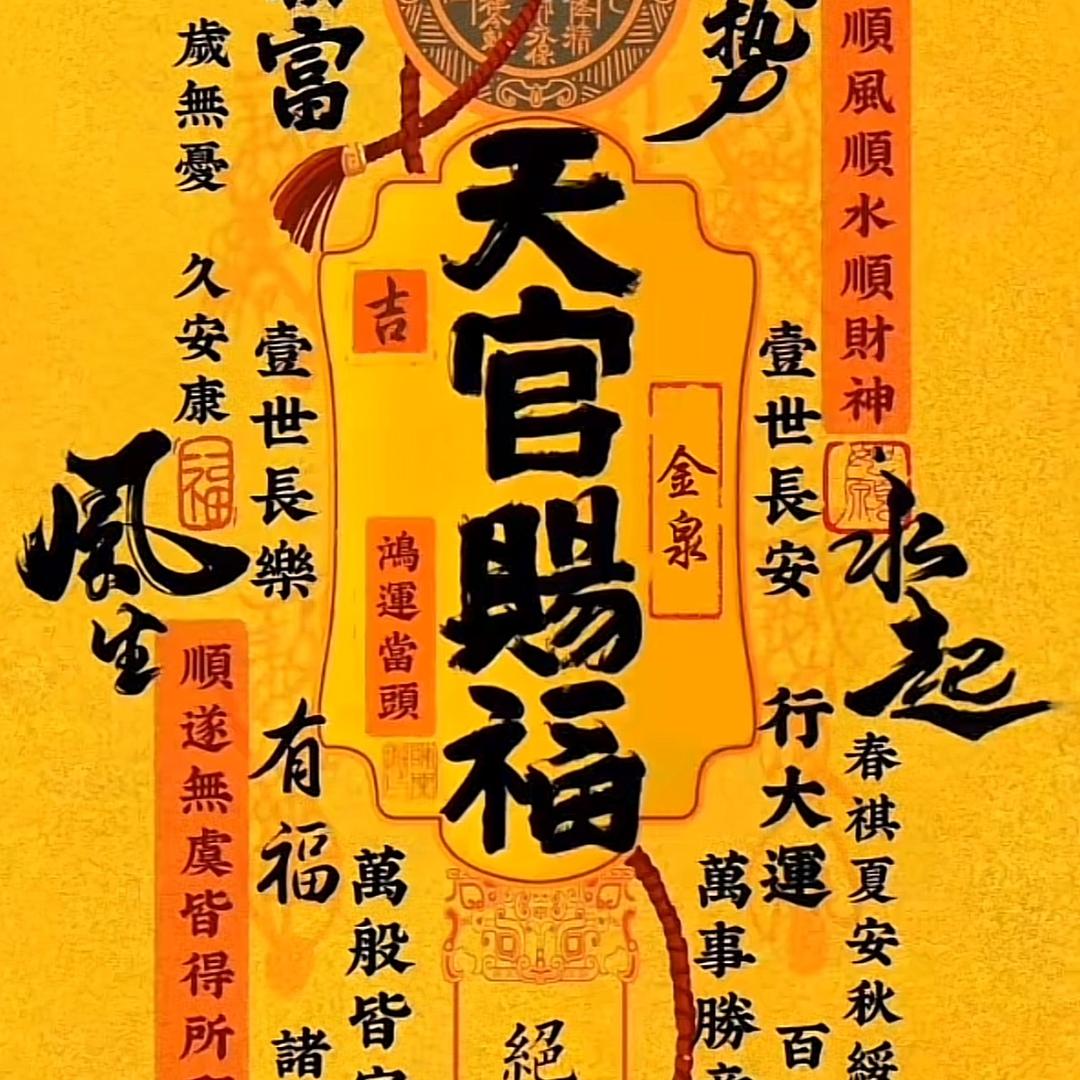 順風順水順財神
勢
永起
壹世長安
行大運
春祺夏安秋綏
百
萬事勝
天官賜福
金泉
吉
鴻運當頭
絕
富
壹世長樂
有福
萬般皆
諸
歲無憂 久安康
福
風生
順遂無虞皆得所